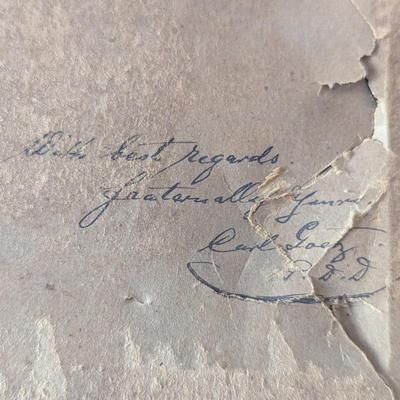 With best regards.
fraternally Yours
Carl Goez.
P.D.D